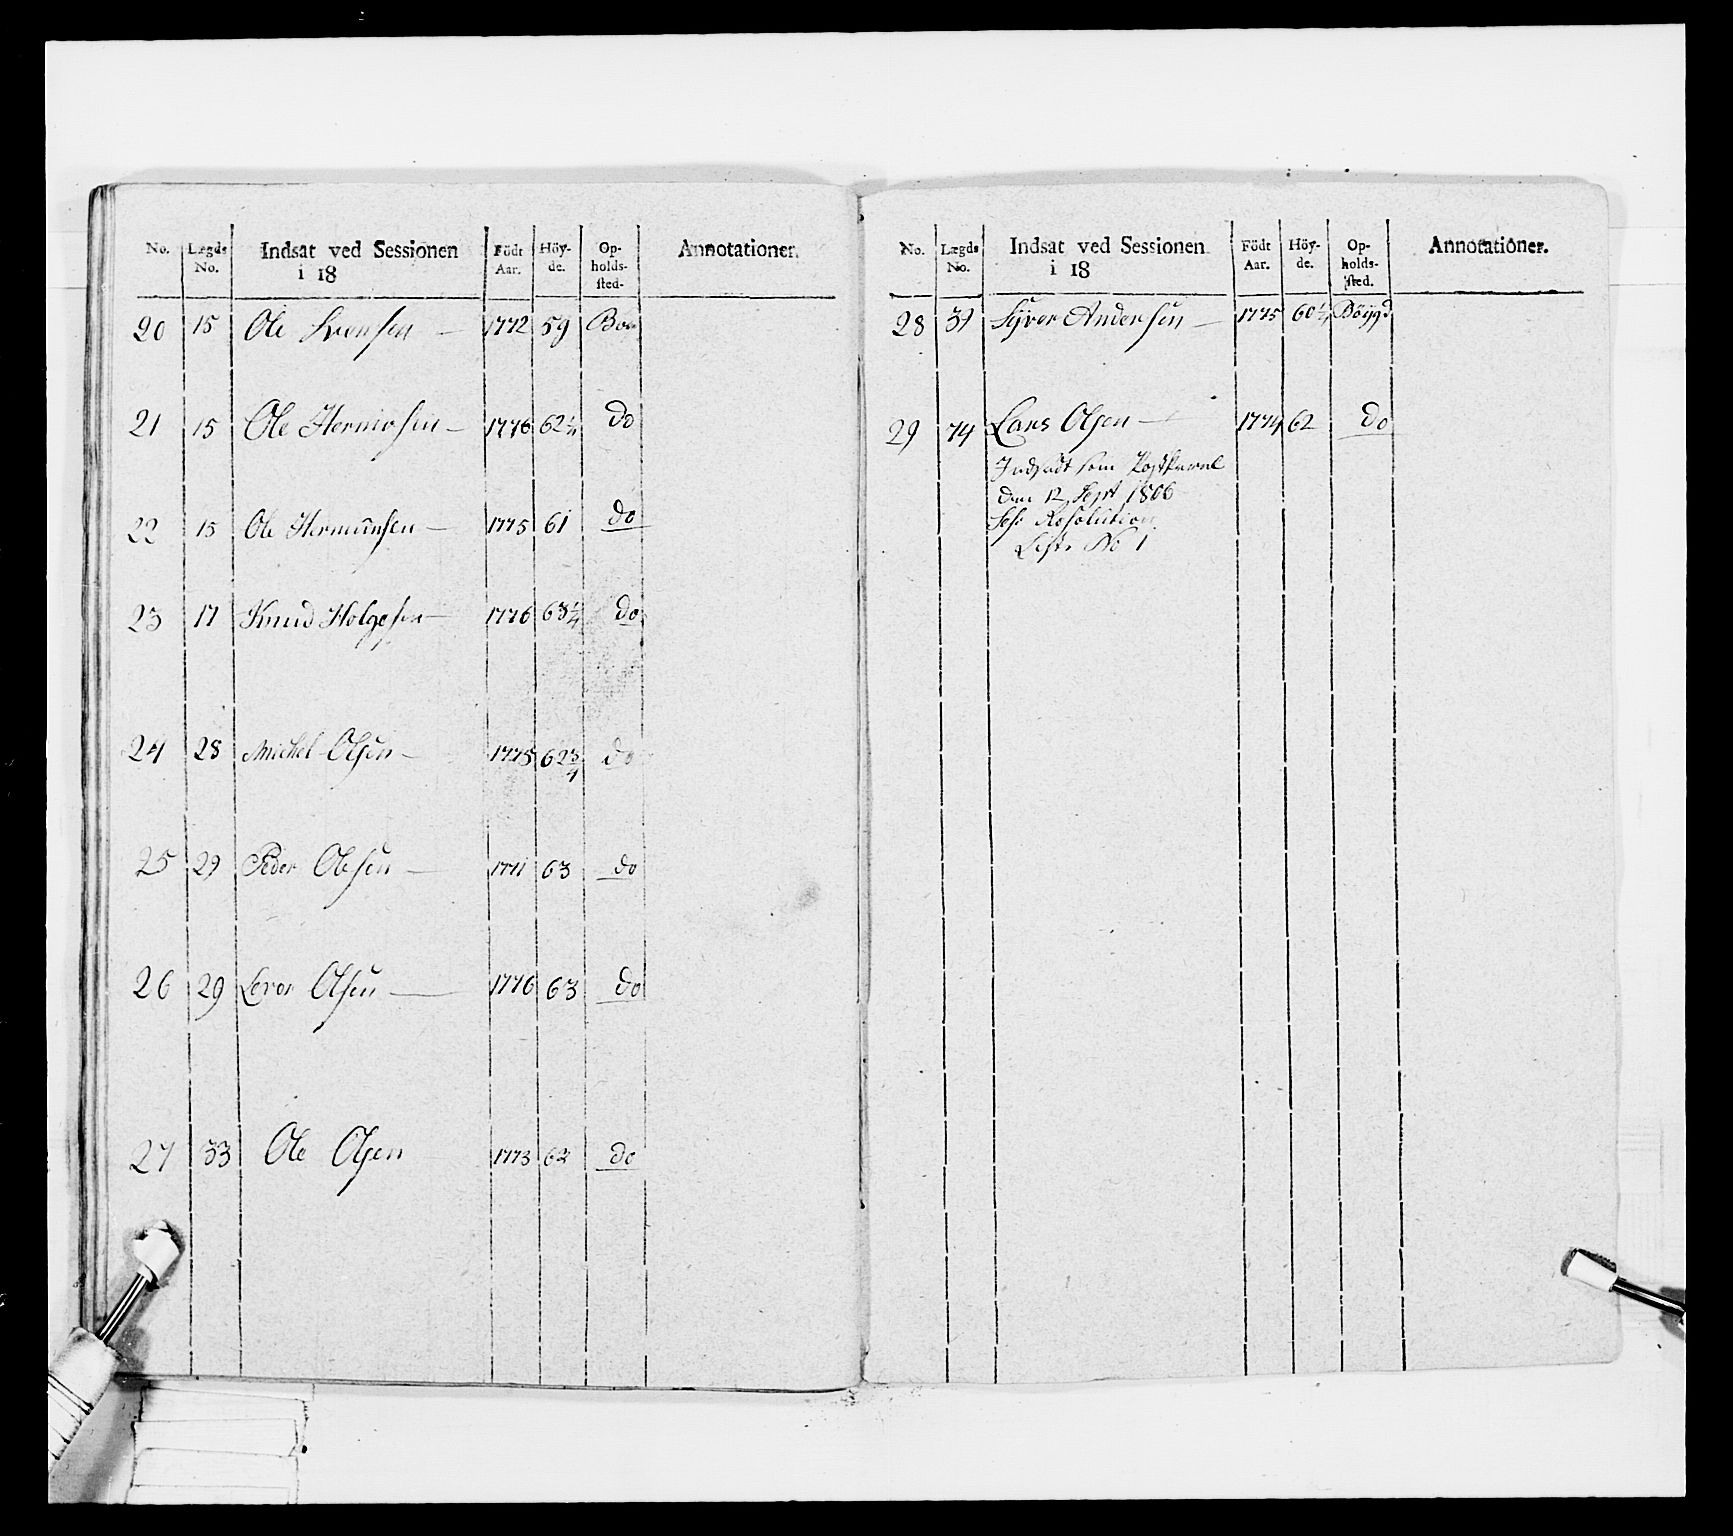 No. Lægds No. Indsat ved Sessionen i 18 Födt Aar. Höy-de. Op-holds-sted- Annotationer.
20 15 Ole Svensen — 1772 59
21 15 Ole — 1776 62 1/4 do
22 15 Ole — 1775 61 do
23 17 Knud Holgesen — 1776 63 1/4 do
24 28 Michel Olsen — 1775 62 3/4 do
25 29 Peder Olesen — 1771 63 do
26 29 Olsen — 1776 63 do
27 33 Ole Olsen 1773 62 do
No. Lægds No. Indsat ved Sessionen i 18 Födt Aar. Höy-de. Op-holds-sted. Annotationer.
28 Syver Andersen — 1775 60 1/4 Böygd
29 74 Lars Olsen — 1774 62 do
Indsadt som
den 12 Sept 1806
Resolution
No 1